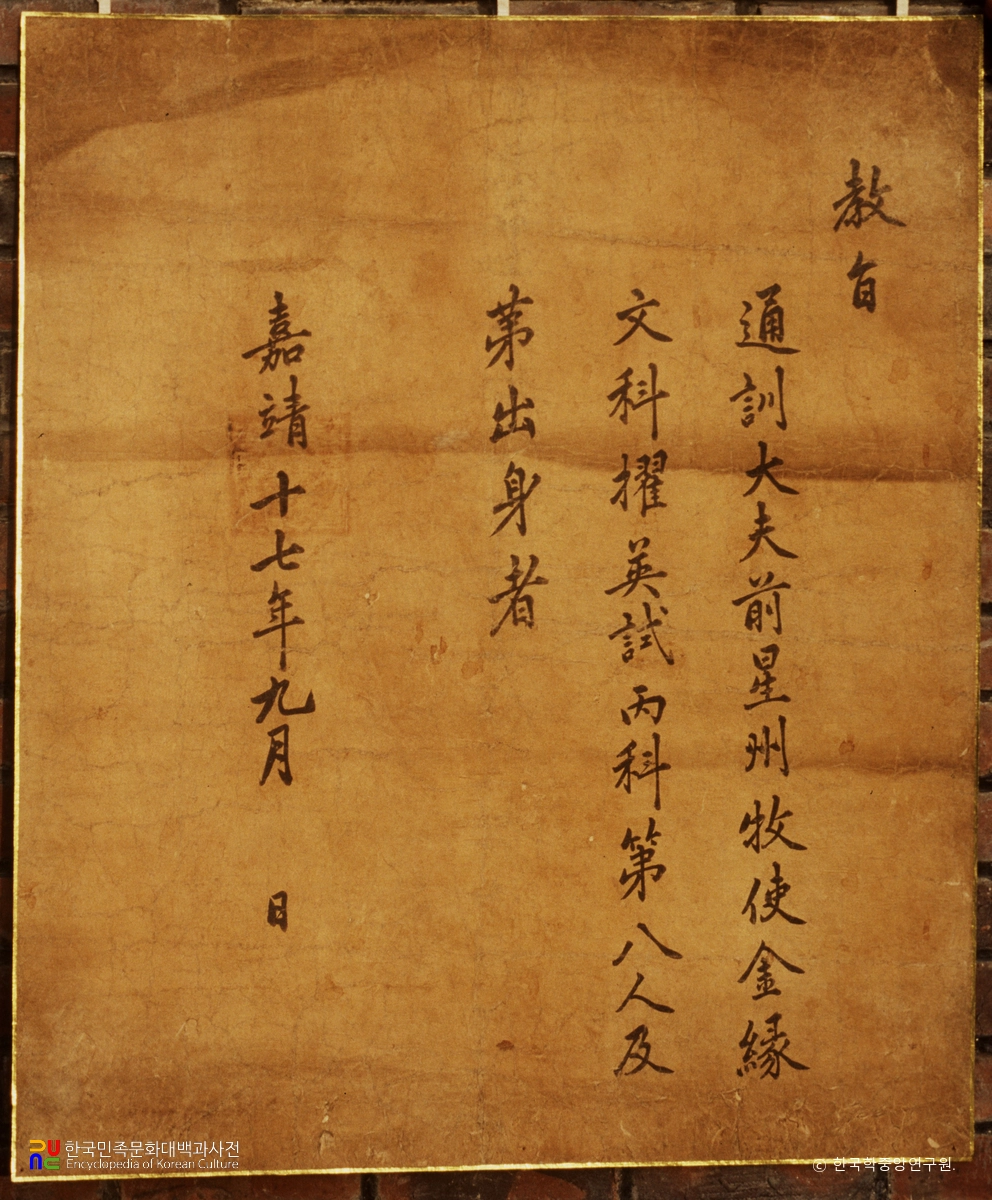 教旨
通訓大夫前星州牧使金緣
文科擢英試丙科第八人及
第出身者
嘉靖十七年九月 日
한국민족문화대백과사전
Encyclopedia of Korean Culture
© 한국학중앙연구원.